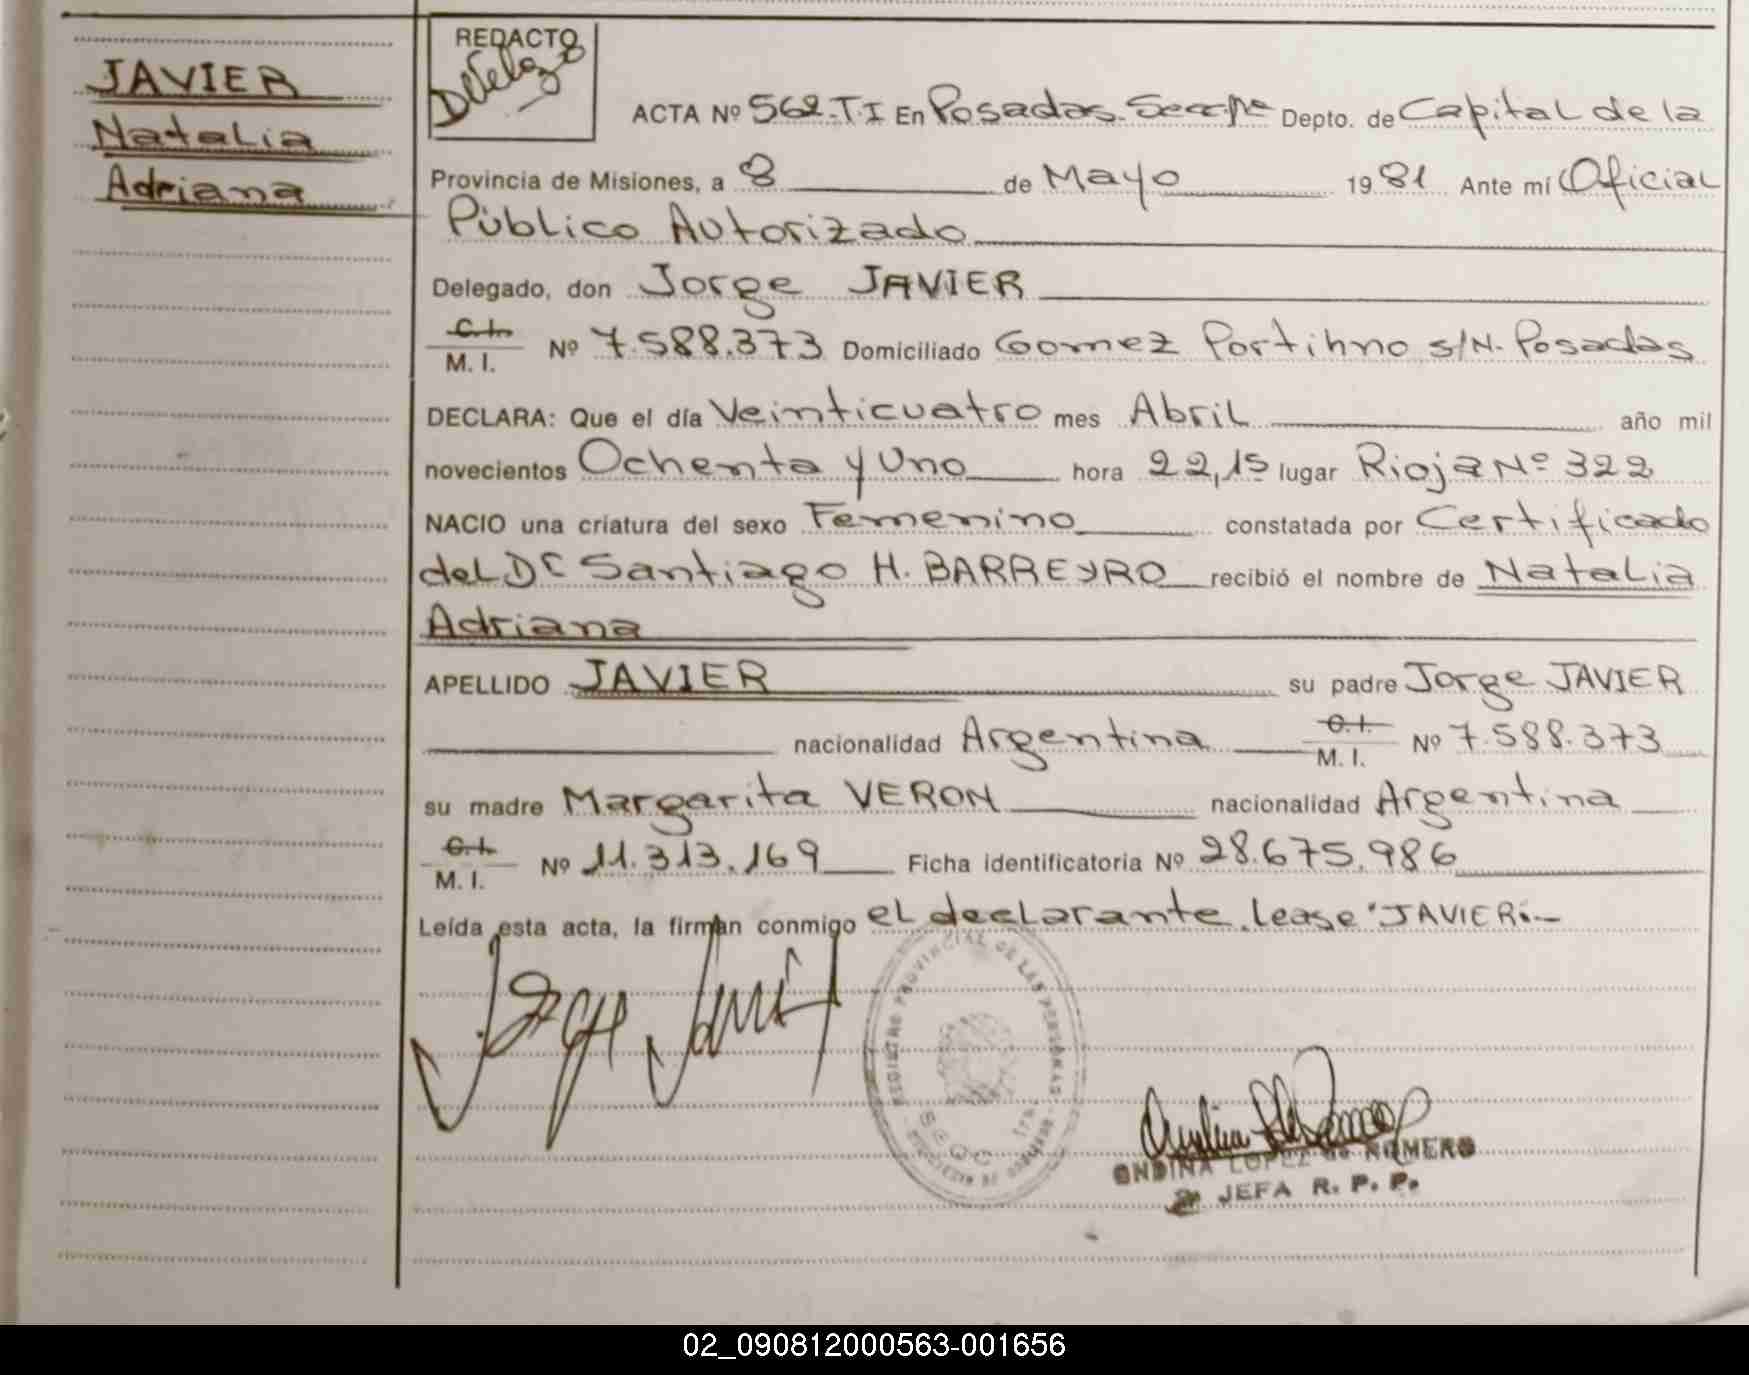 JAVIER
Natalia
Adriana
REDACTO
ACTA Nº 562-T.I En Posadas Depto. de Capital de la
Provincia de Misiones, a 8 de Mayo 1981 Ante mí Oficial
Público Autorizado
Delegado, don Jorge JAVIER
C.I.
M. I. Nº 7.588.373 Domiciliado Gomez Portihno s/N. Posadas
DECLARA: Que el día Veinticuatro mes Abril año mil
novecientos Ochenta y Uno hora 22,15 lugar Rioja Nº 322
NACIO una criatura del sexo Femenino constatada por Certificado
del Dr Santiago H. BARREYRO recibió el nombre de Natalia
Adriana
APELLIDO JAVIER su padre Jorge JAVIER
nacionalidad Argentina C.I. M. I. Nº 7.588.373
su madre Margarita VERON nacionalidad Argentina
C.I.
M. I. Nº 11.313.169 Ficha identificatoria Nº 28.675.986
Leída esta acta, la firman conmigo el declarante. Lease "JAVIER".-
REGISTRO PROVINCIAL DE LAS PERSONAS
ONDINA LOPEZ de ROMERO
JEFA R. P. P.
02_090812000563-001656